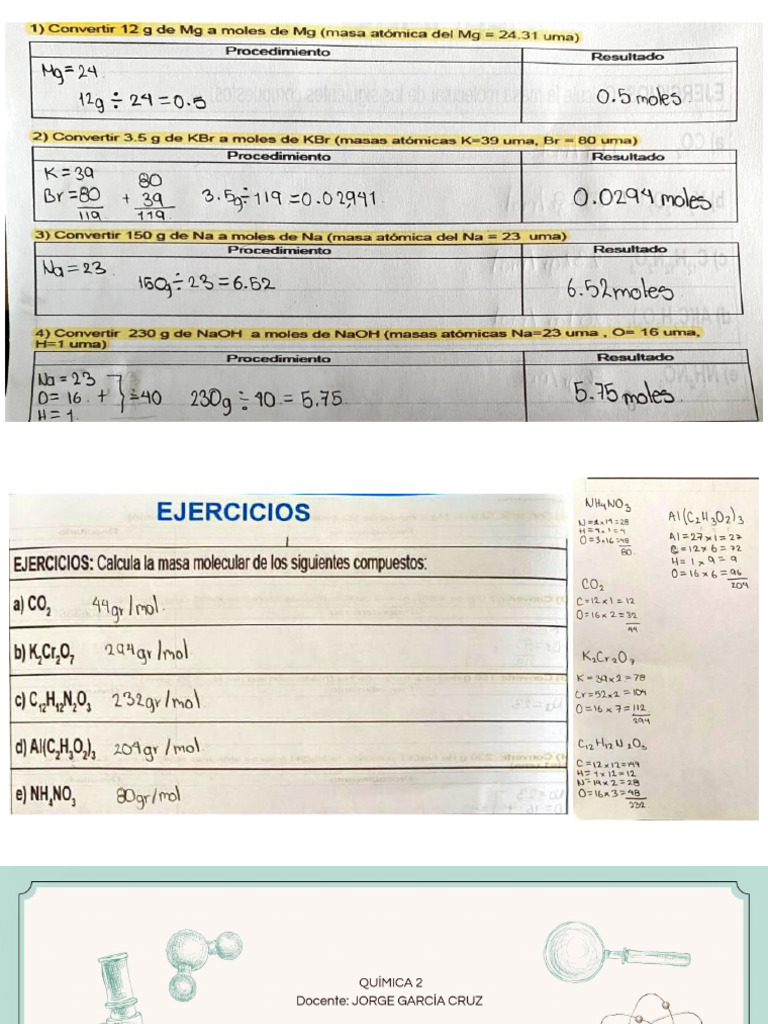 1) Convertir 12 g de Mg a moles de Mg (masa atómica del Mg = 24.31 uma)
Procedimiento Resultado
Mg = 24
12g ÷ 24 = 0.5 0.5 moles
2) Convertir 3.5 g de KBr a moles de KBr (masas atómicas K=39 uma, Br = 80 uma)
Procedimiento Resultado
K = 39 80
Br = 80 + 39 3.5g ÷ 119 = 0.02941 0.0294 moles
119 119
3) Convertir 150 g de Na a moles de Na (masa atómica del Na = 23 uma)
Procedimiento Resultado
Na = 23
150g ÷ 23 = 6.52 6.52 moles
4) Convertir 230 g de NaOH a moles de NaOH (masas atómicas Na=23 uma , O= 16 uma,
H=1 uma)
Procedimiento Resultado
Na = 23
O = 16 + ÷ 40 230g ÷ 40 = 5.75 5.75 moles
H = 1
EJERCICIOS
EJERCICIOS: Calcula la masa molecular de los siguientes compuestos:
a) CO2 44gr/mol.
b) K2Cr2O7 294gr/mol
c) C12H12N2O3 232gr/mol
d) Al(C2H3O2)3 204gr/mol.
e) NH4NO3 80gr/mol
NH4NO3
N = 2x14=28
H = 4x1=4
O = 3x16=48
80
CO2
C = 12x1 = 12
O = 16x2 = 32
44
K2Cr2O7
K = 39x2 = 78
Cr = 52x2 = 104
O = 16x7 = 112
294
C12H12N2O3
C = 12x12=144
H = 1x12=12
N = 14x2=28
O = 16x3=48
232
Al(C2H3O2)3
Al = 27x1 = 27
C = 12x6 = 72
H = 1x9 = 9
O = 16x6 = 96
204
QUÍMICA 2
Docente: JORGE GARCÍA CRUZ